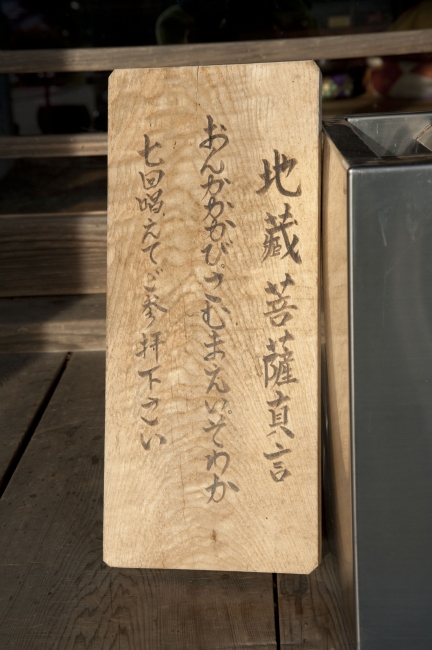 地蔵菩薩真言
おんかかかびさむまえいそわか
七回唱えてご参拝下さい